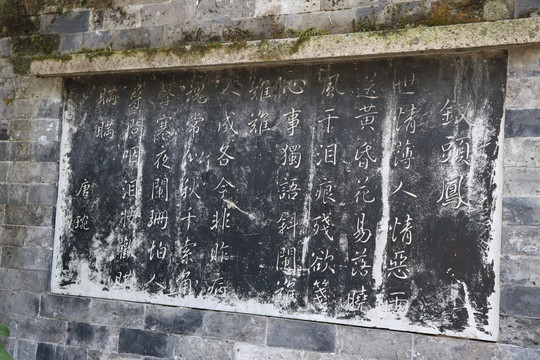 釵頭鳳
世情薄人情惡雨
送黃昏花易落曉
風干泪痕殘欲箋
心事獨語斜闌難
難難
人成各今非昨病
魂常似秋千索角
聲寒夜闌珊怕人
尋問咽泪裝歡瞞
瞞瞞
唐琬